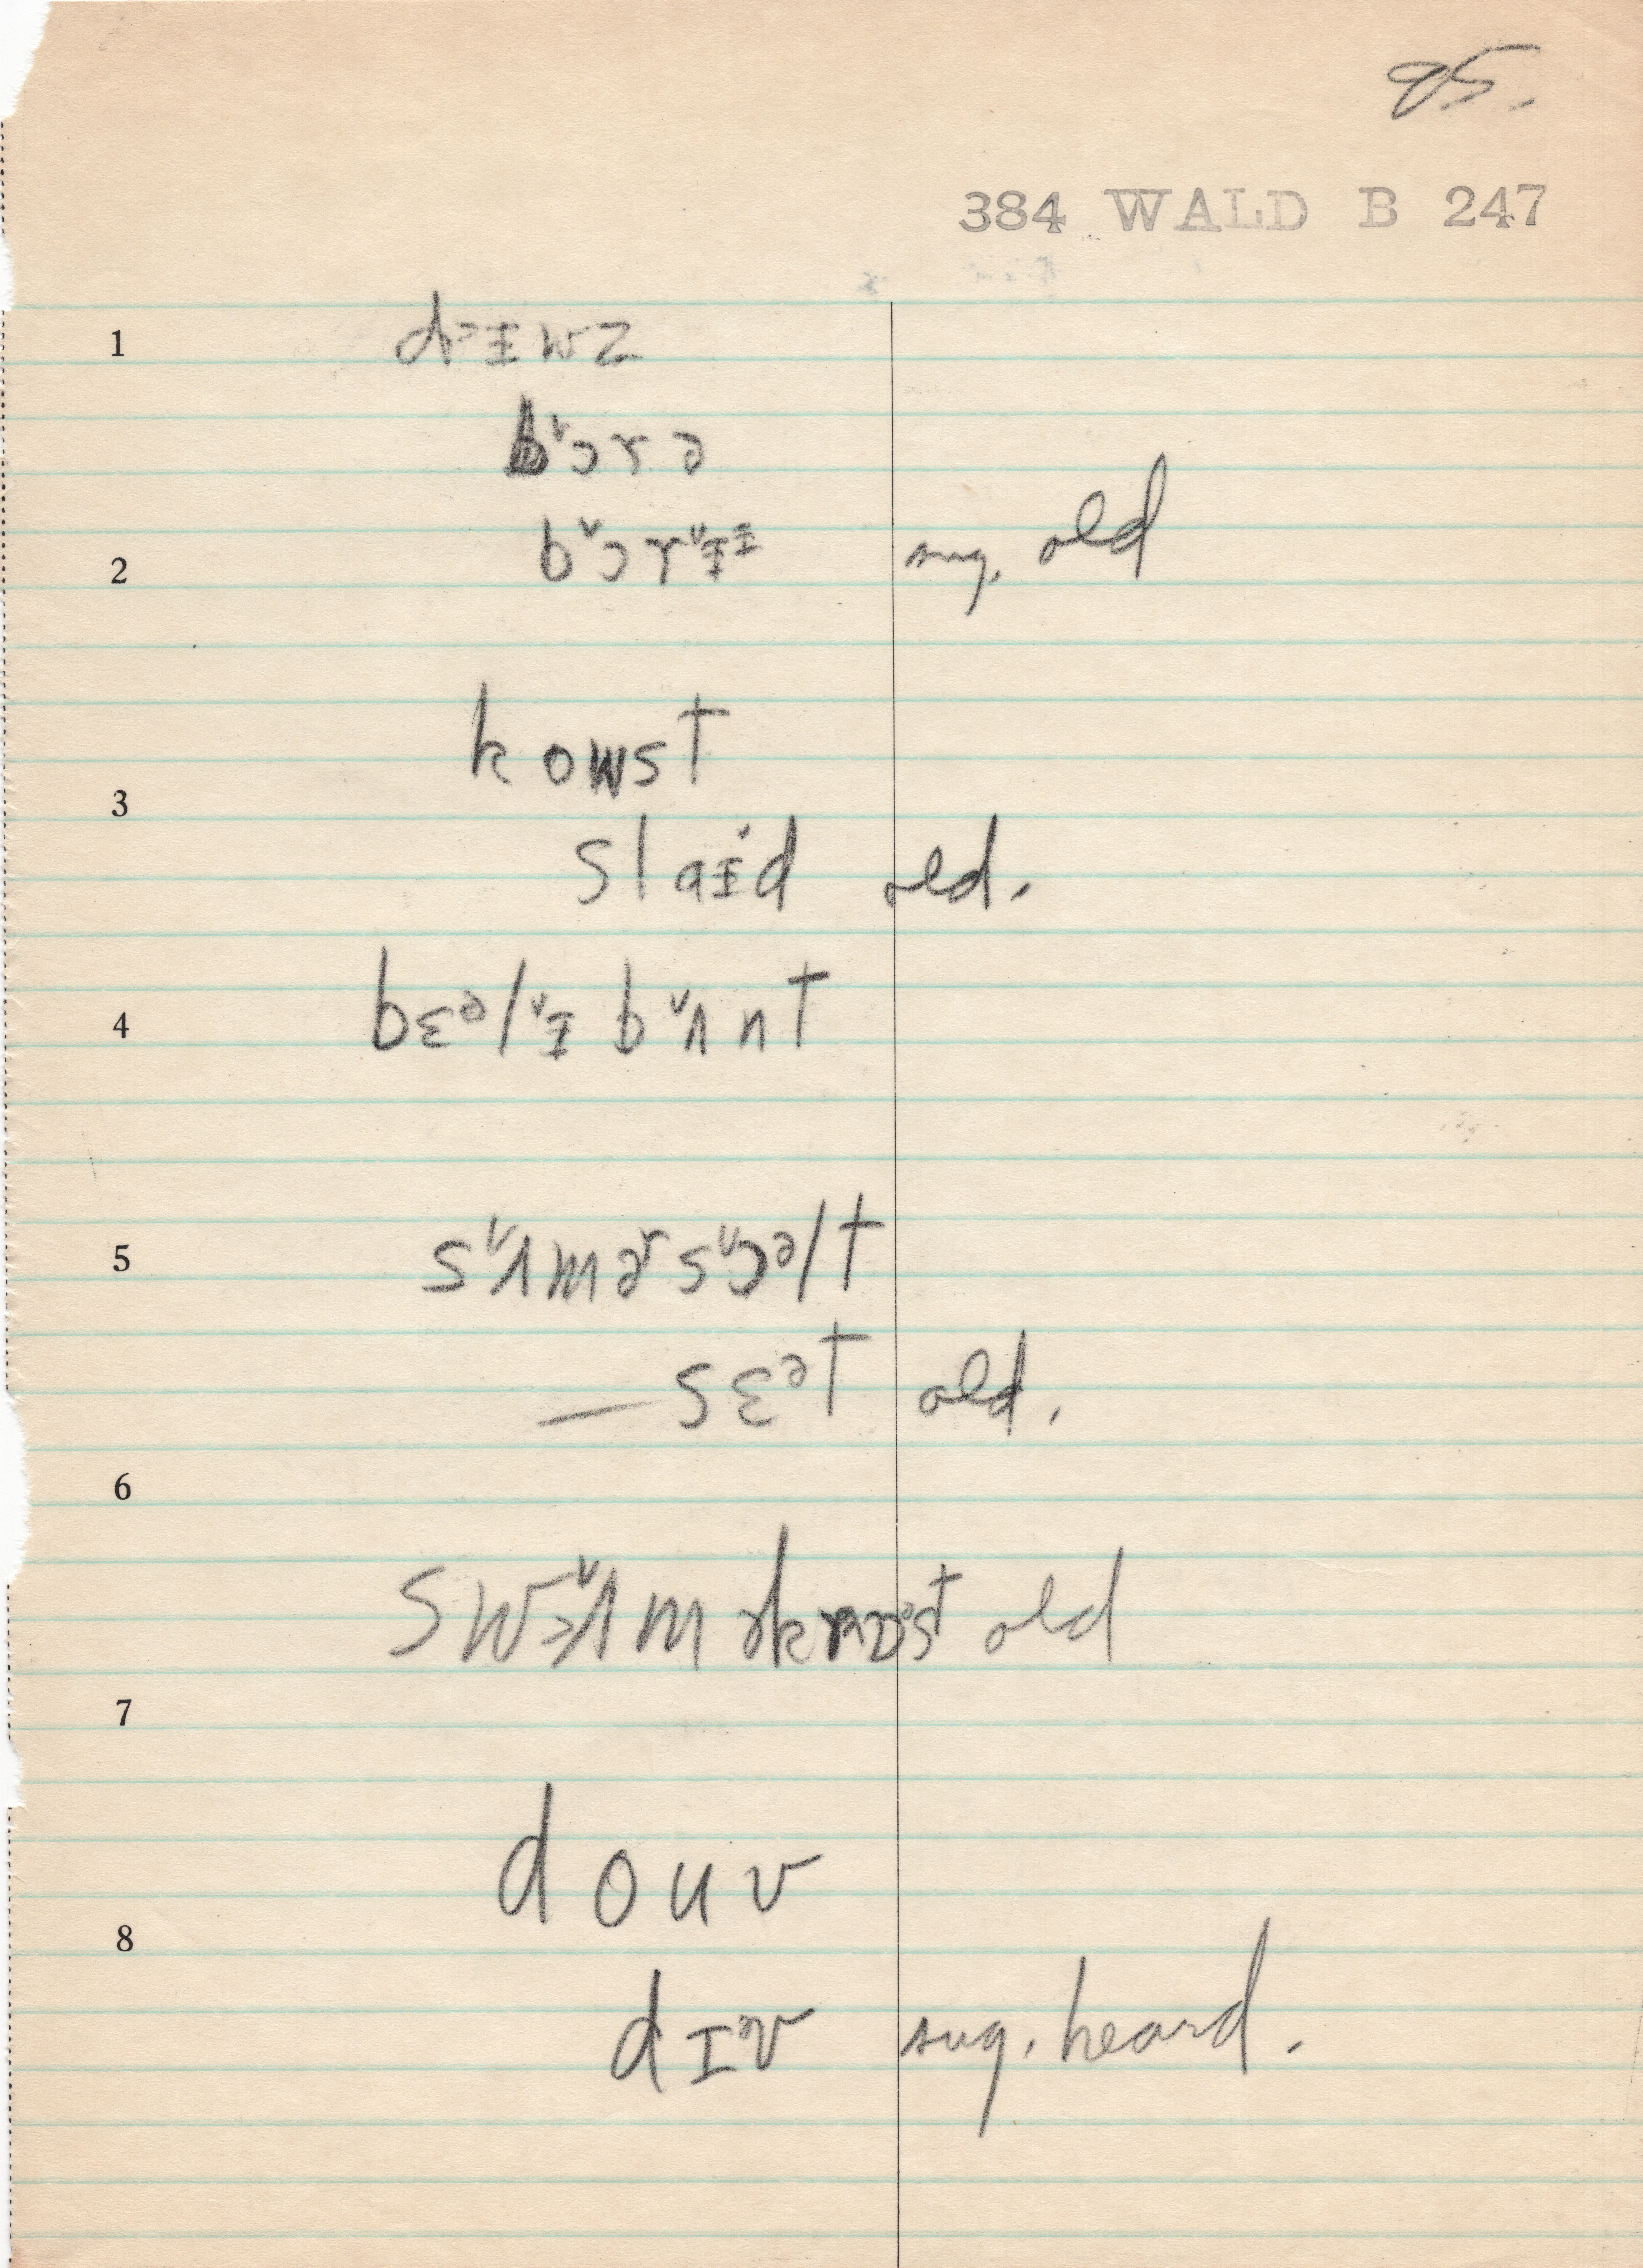 85.
384 WALD B 247
1 d˃ᵻwz
b˅ɔrə
2 b˅ɔr˅ᵻᵻ sug. old
kowst
3
slaᵻ˅d old.
4 bɛᵊl˅ᵻ b˅ʌnt
5 s˅ʌmɚ s˅ɔᵊlt
— sɛᵊt old.
6
old
7
douv
8
dɪv sug. heard.